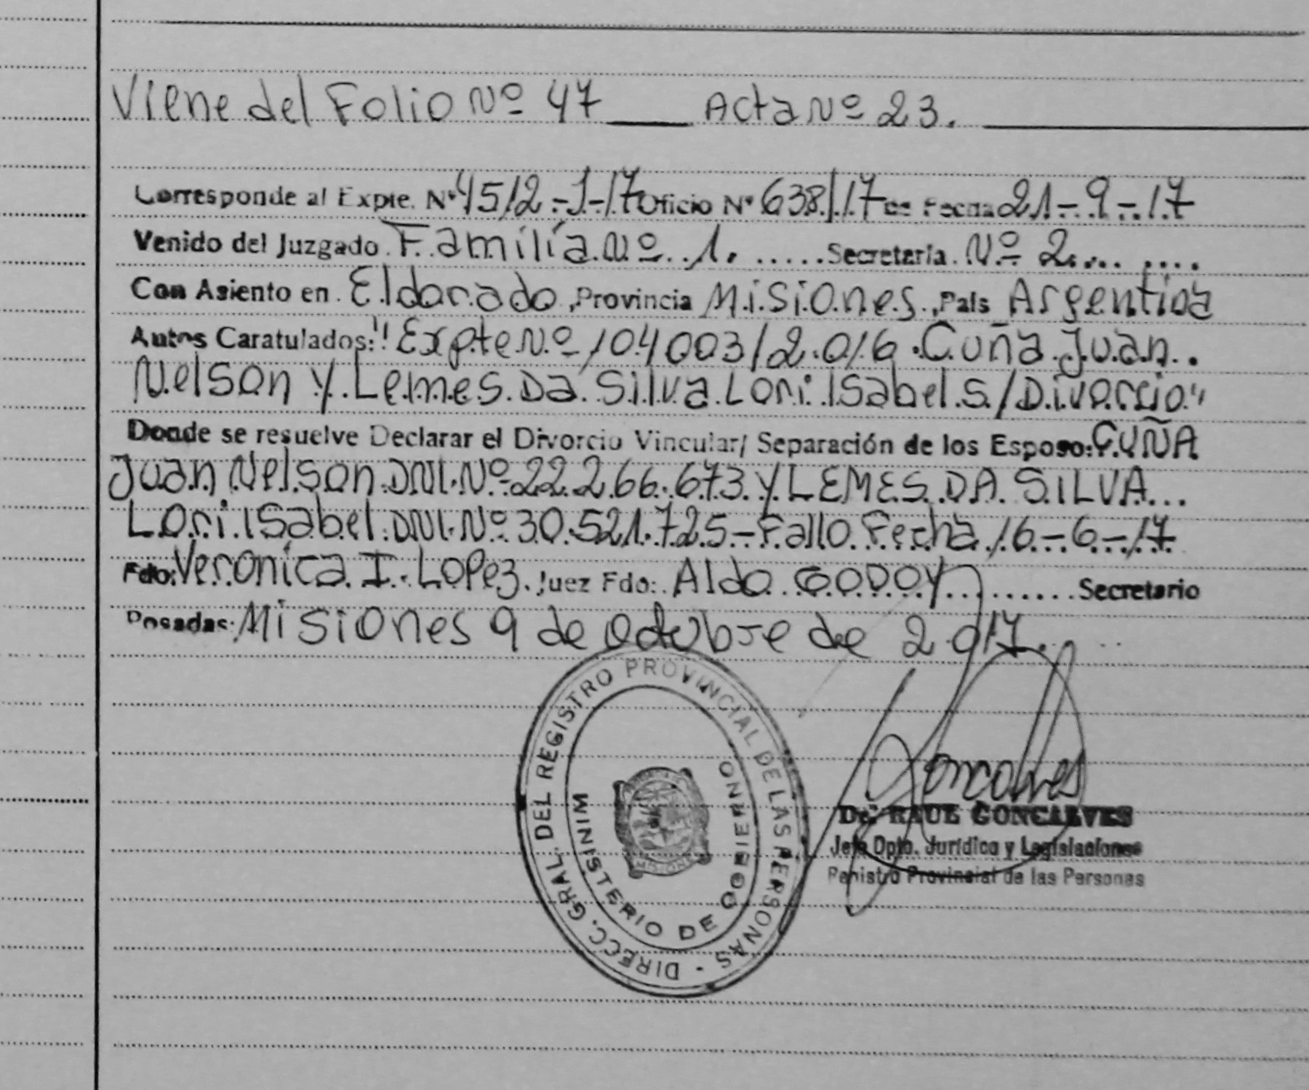 Viene del Folio Nº 47 ___ Acta Nº 23.
Corresponde al Expte. Nº 4512-J-17 Oficio Nº 638/17 de Fecha 21-9-17
Venido del Juzgado Familia Nº 1. Secretaría Nº 2
Con Asiento en Eldorado, Provincia Misiones, País Argentina
Autos Caratulados: "Expte Nº 104003/2.016. Cuña Juan
Nelson y Lemes Da Silva Lori Isabel S/Divorcio"
Donde se resuelve Declarar el Divorcio Vincular/ Separación de los Esposo: CUÑA
Juan Nelson DNI. Nº 22.266.673 y LEMES DA SILVA
Lori Isabel DNI. Nº 30.521.725 - Fallo Fecha 16-6-17
Fdo: Veronica I. Lopez. Juez Fdo: Aldo GODOY Secretario
Posadas: Misiones 9 de Octubre de 2.017.
DIRECC. GRAL. DEL REGISTRO PROVINCIAL DE LAS PERSONAS -
MINISTERIO DE GOBIERNO
Goncalves
Dr. RAUL GONCALVES
Jefe Dpto. Jurídico y Legislaciones
Registro Provincial de las Personas